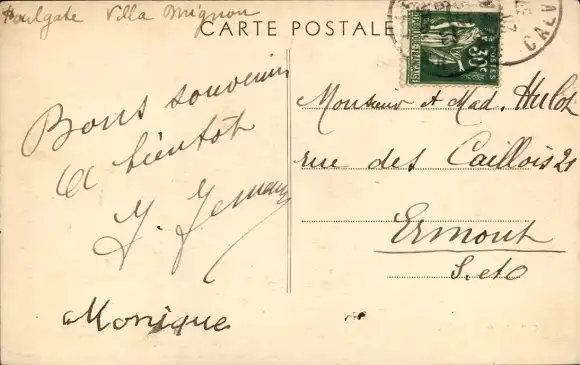 Houlgate Villa Mignon
CARTE POSTALE
Bons souvenirs
A bientôt
Monique
POSTES
30c
CALV
Monsieur et Mad. Hulot
rue des Caillois 21
Ermont
S. et O